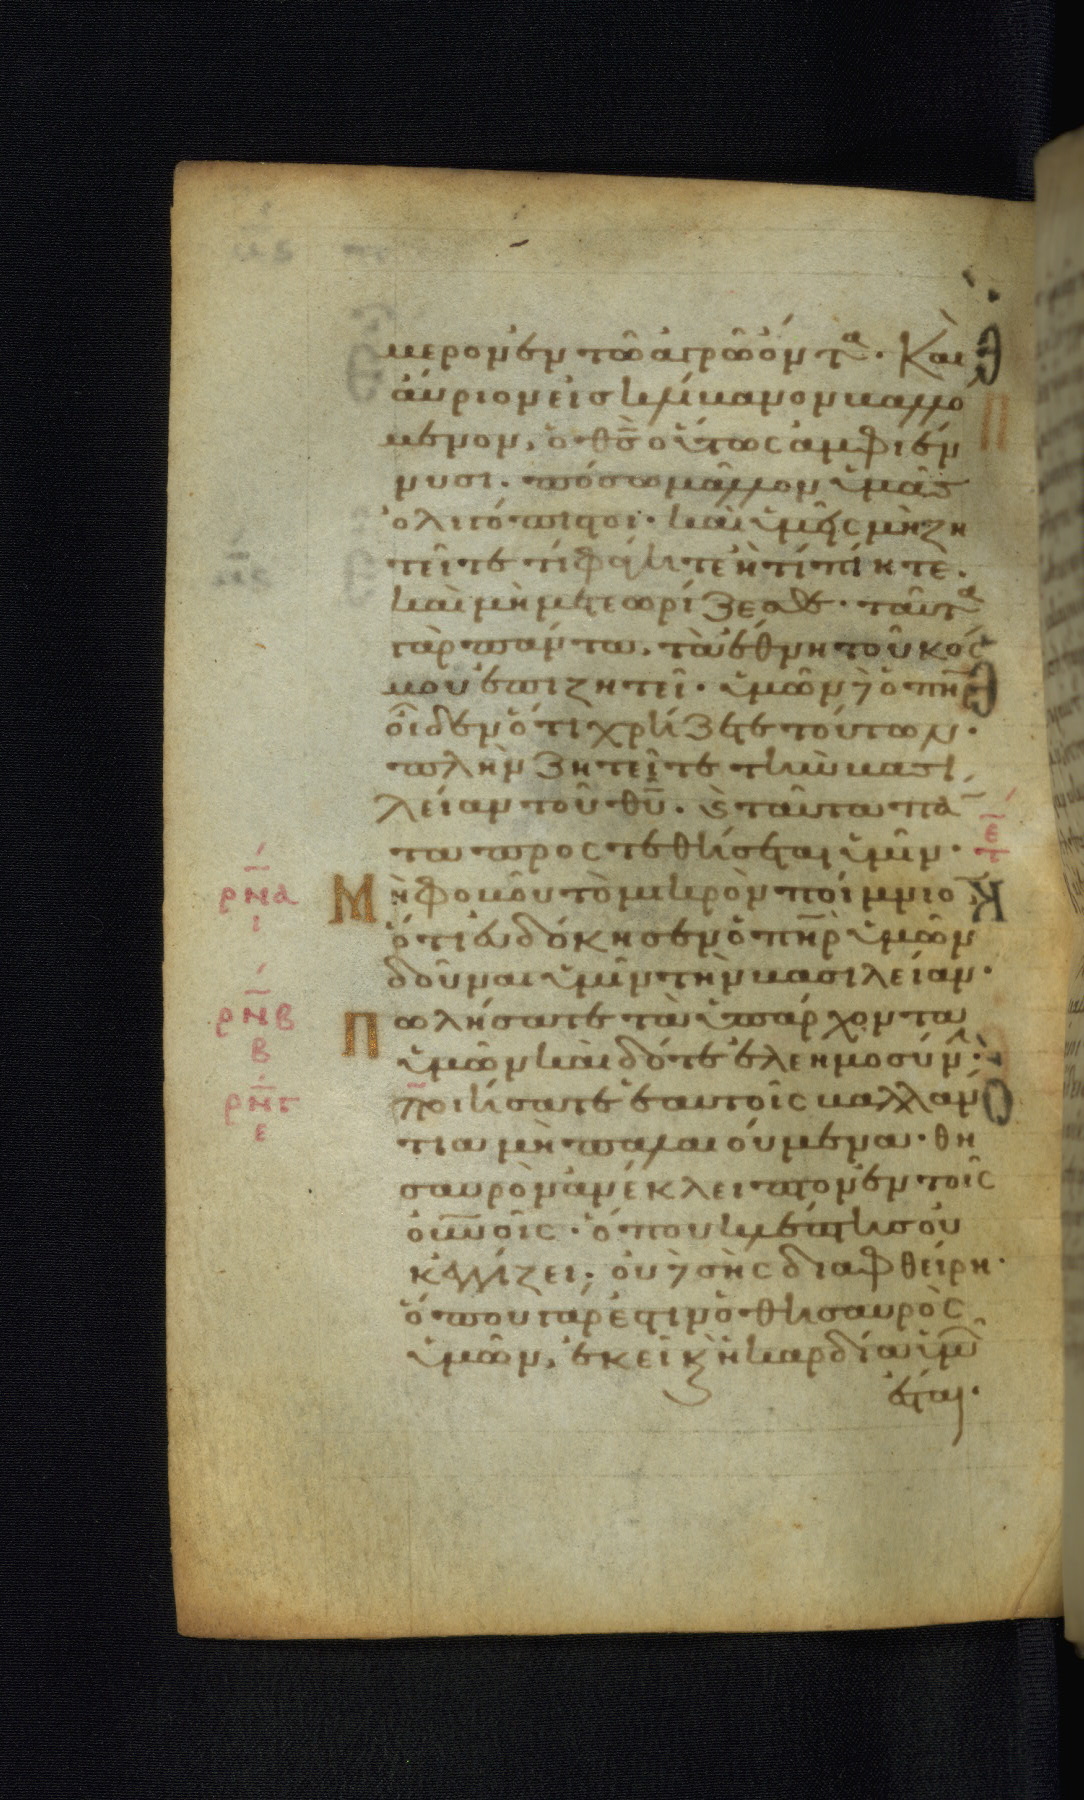 μερον ἐν τῶ ἀγρῶ ὄντα. Και
ἀύριον εἰς κλίβανον βαλλό
μενον, ὁ θς οὕτως ἀμφιέν
νυσι. πόσω μᾶλλον ὑμᾶς
ὀλιγόπιστοι. καὶ ὑμεῖς μὴ ζη
τεῖτε τί φάγητε ἢ τί πίητε.
καὶ μὴ μετεωρίζεσθε. ταῦτα
γὰρ πάντα, τὰ ἔθνη τοῦ κόσ
μου ἐπιζητεῖ. ὑμῶν δὲ ὁ πηρ
οἶδεν ὅτι χρήζετε τούτων.
πλὴν ζητεῖτε τὴν βασι
λείαν τοῦ θυ. καὶ ταῦτα πά
ντα προστεθήσεται ὑμῖν.
ρμα
ι
Μὴ φοβοῦ τὸ μικρὸν ποίμνιον
ὅτι εὐδόκησεν ὁ πηρ ὑμῶν
δοῦναι ὑμῖν τὴν βασιλείαν.
ρμβ
β
Πωλήσατε τὰ ὑπάρχοντα
ὑμῶν καὶ δότε ἐλεημοσύνην.
ρμγ
ε
ποιήσατε ἑαυτοῖς βαλλάν
τια μὴ παλαιούμενα. θη
σαυρὸν ἀνέκλειπτον ἐν τοῖς
οὐνοῖς. ὅπου κλέπτης οὐ
κ ἐγγίζει. οὐδὲ σὴς διαφθείρη.
ὅπου γάρ ἐστιν ὁ θησαυρὸς
ὑμῶν, ἐκεῖ καὶ ἡ καρδία ὑμῶν
ἔσται.